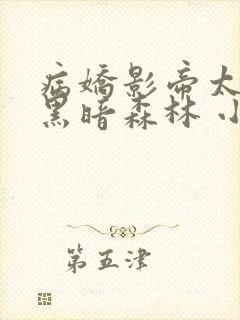 病嬌影帝太
黑暗森林 小
第五津